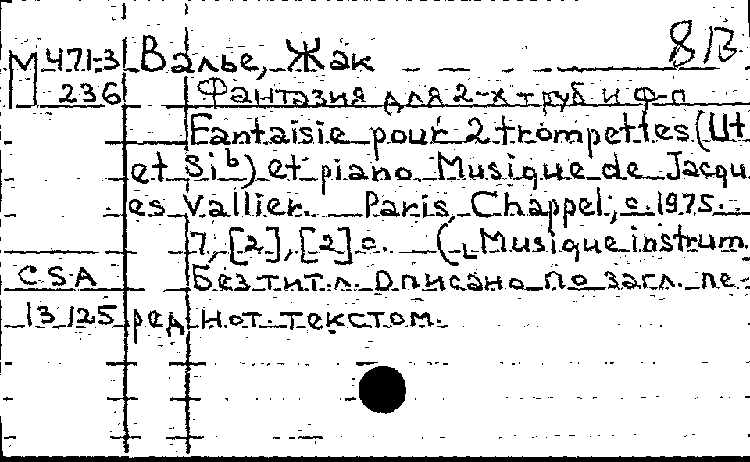 8В
М 471-3 Валье, Жак
236 Фантазия для 2-х труб и ф-п
Fantaisie pour 2 trompettes (Ut
et Si b) et piano Musique de Jacqu
es Vallier. Paris, Chappel, c. 1975.
7, [2], [2] с. (Musique instrum.
CSA Без тит. л. Описано по загл. пе-
13125 ред нот. текстом.